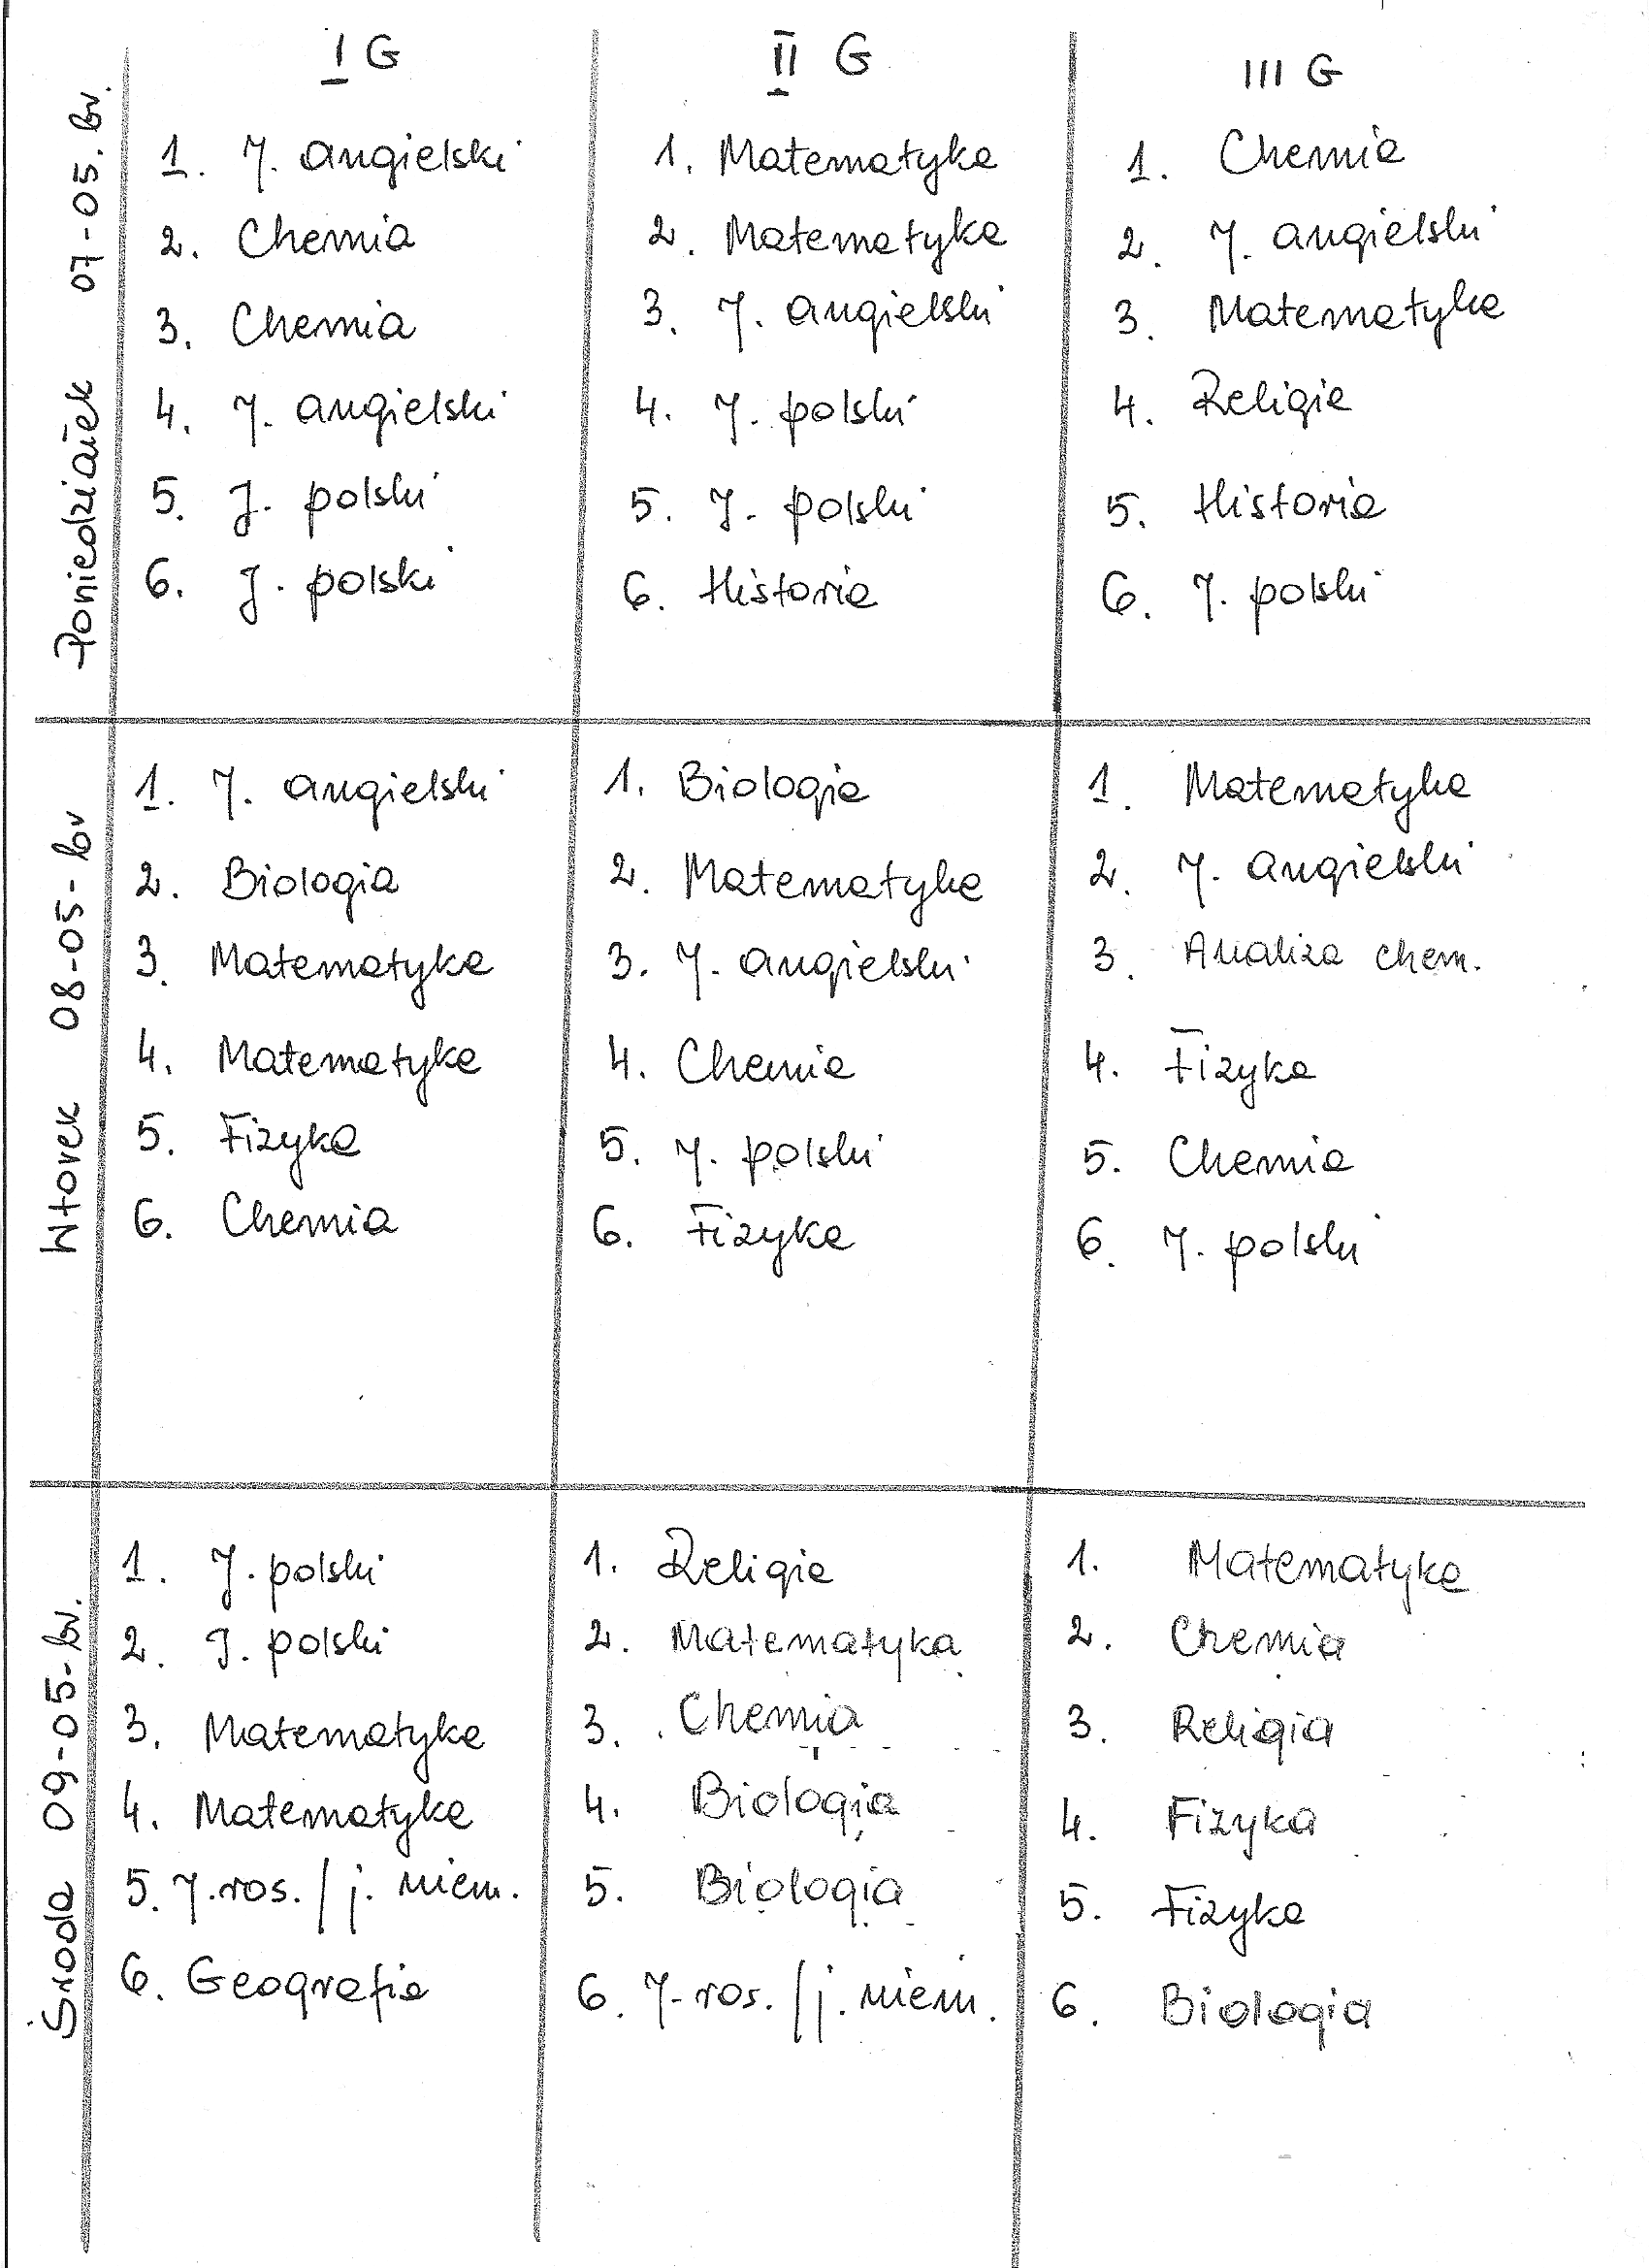 I G
II G
III G
Poniedziałek 07-05. br.
1. J. angielski
2. Chemia
3. Chemia
4. J. angielski
5. J. polski
6. J. polski
1. Matematyka
2. Matematyka
3. J. angielski
4. J. polski
5. J. polski
6. Historia
1. Chemia
2. J. angielski
3. Matematyka
4. Religia
5. Historia
6. J. polski
Wtorek 08-05-br
1. J. angielski
2. Biologia
3. Matematyka
4. Matematyka
5. Fizyka
6. Chemia
1. Biologia
2. Matematyka
3. J. angielski
4. Chemia
5. J. polski
6. Fizyka
1. Matematyka
2. J. angielski
3. Analiza chem.
4. Fizyka
5. Chemia
6. J. polski
Środa 09-05-br.
1. J. polski
2. J. polski
3. Matematyka
4. Matematyka
5. J. ros. / j. niem.
6. Geografia
1. Religia
2. Matematyka
3. Chemia
4. Biologia
5. Biologia
6. J. ros. / j. niem.
1. Matematyka
2. Chemia
3. Religia
4. Fizyka
5. Fizyka
6. Biologia